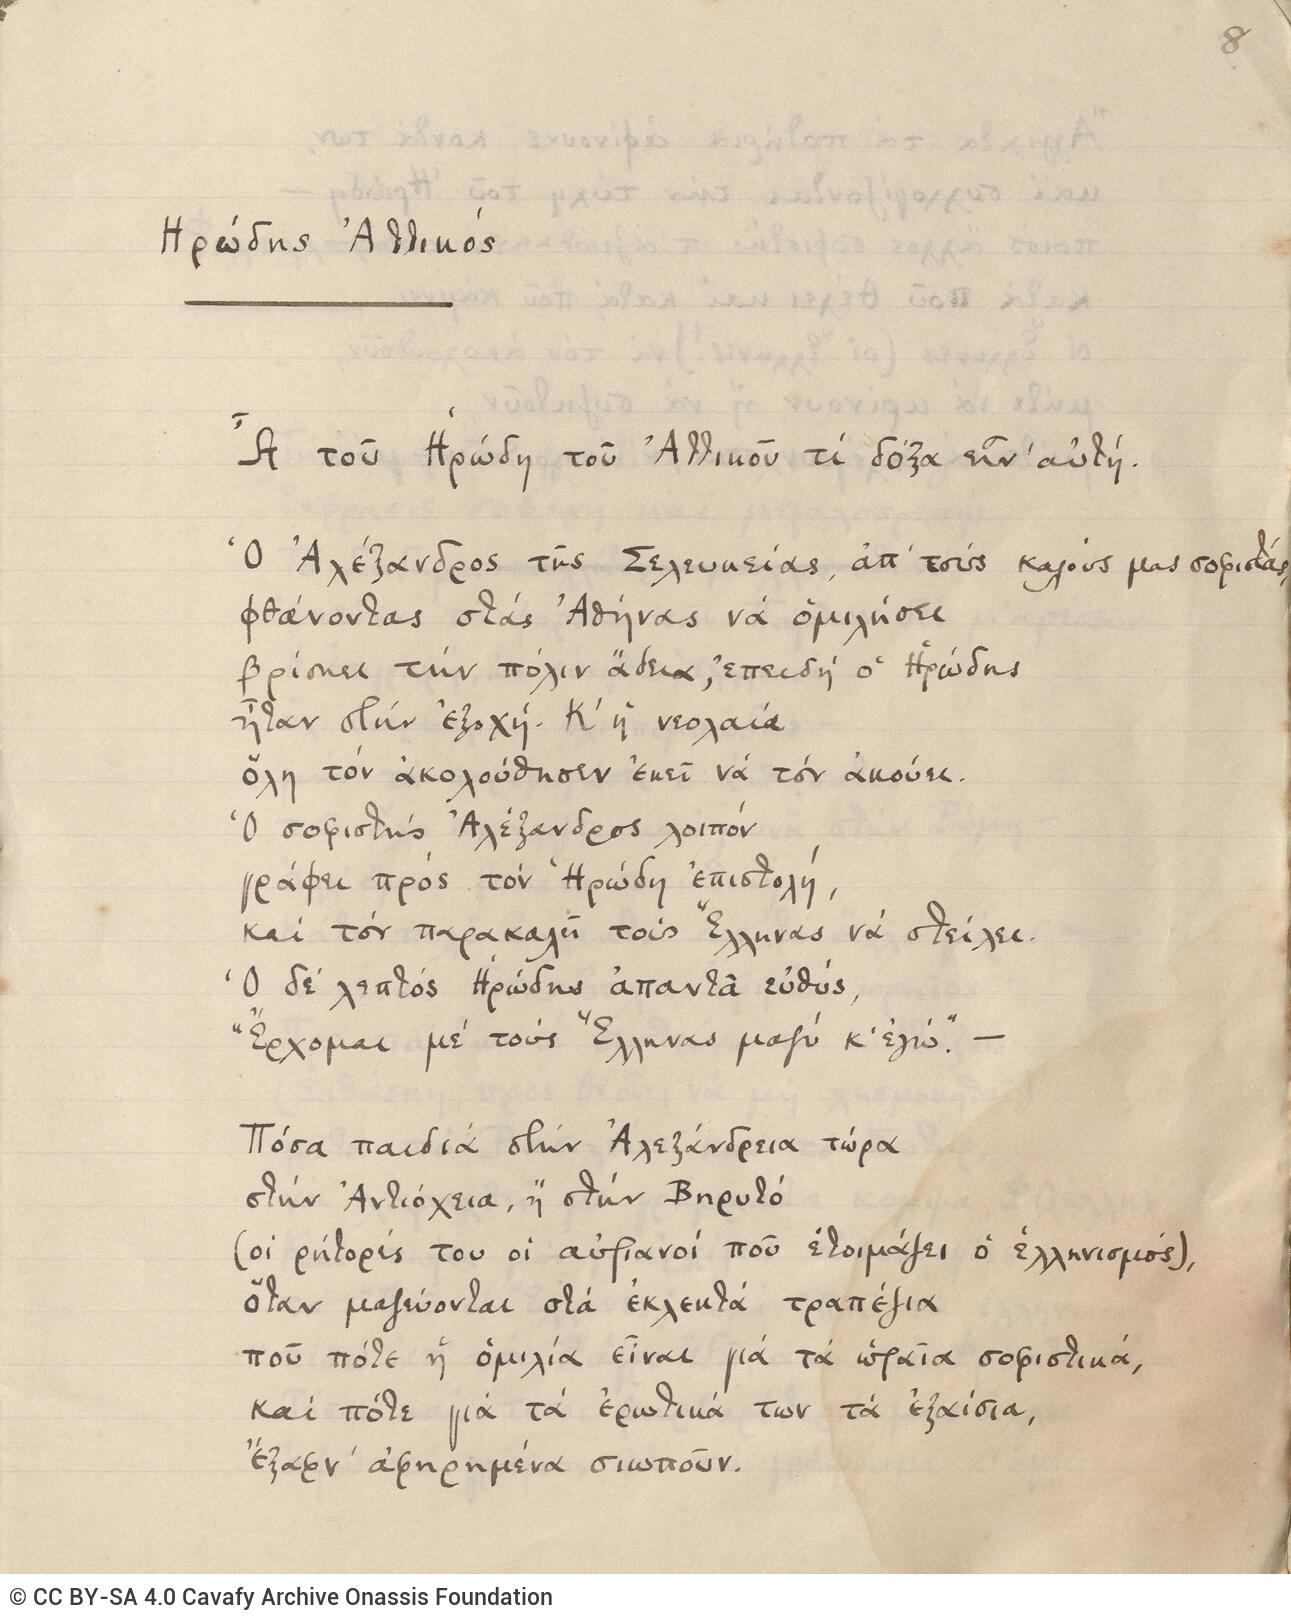 8
Ηρώδης Ἀττικός
Ἆ τοῦ Ἡρώδη τοῦ Ἀττικοῦ τί δόξα εἶν' αὐτή.
Ὁ Ἀλέξανδρος τῆς Σελευκείας, ἀπ' τούς καλούς μας σοφιστάς,
φθάνοντας στάς Ἀθήνας νά ὁμιλήσει
βρίσκει τήν πόλιν ἄδεια, ἐπειδή ὁ Ἡρώδης
ἦταν στήν ἐξοχή. Κ' ἡ νεολαία
ὅλη τόν ἀκολούθησεν ἐκεῖ νά τόν ἀκούει.
Ὁ σοφιστής Ἀλέξανδρος λοιπόν
γράφει πρός τόν Ἡρώδη ἐπιστολή,
καί τόν παρακαλῆ τούς Ἕλληνας νά στείλει.
Ὁ δέ λεπτός Ἡρώδης ἀπαντᾶ εὐθύς,
"Ἔρχομαι μέ τούς Ἕλληνας μαζύ κ' ἐγώ." —
Πόσα παιδιά στήν Ἀλεξάνδρεια τώρα
στήν Ἀντιόχεια, ἤ στήν Βηρυτό
(οἱ ρήτορές του οἱ αὐριανοί ποῦ ἑτοιμάζει ὁ ἑλληνισμός),
ὅταν μαζεύονται στά ἐκλεκτά τραπέζια
ποῦ πότε ἡ ὁμιλία εἶναι γιά τά ὡραῖα σοφιστικά,
καί πότε γιά τά ἐρωτικά των τά ἐξαίσια,
ἔξαφν' ἀφηρημένα σιωποῦν.
© CC BY-SA 4.0 Cavafy Archive Onassis Foundation